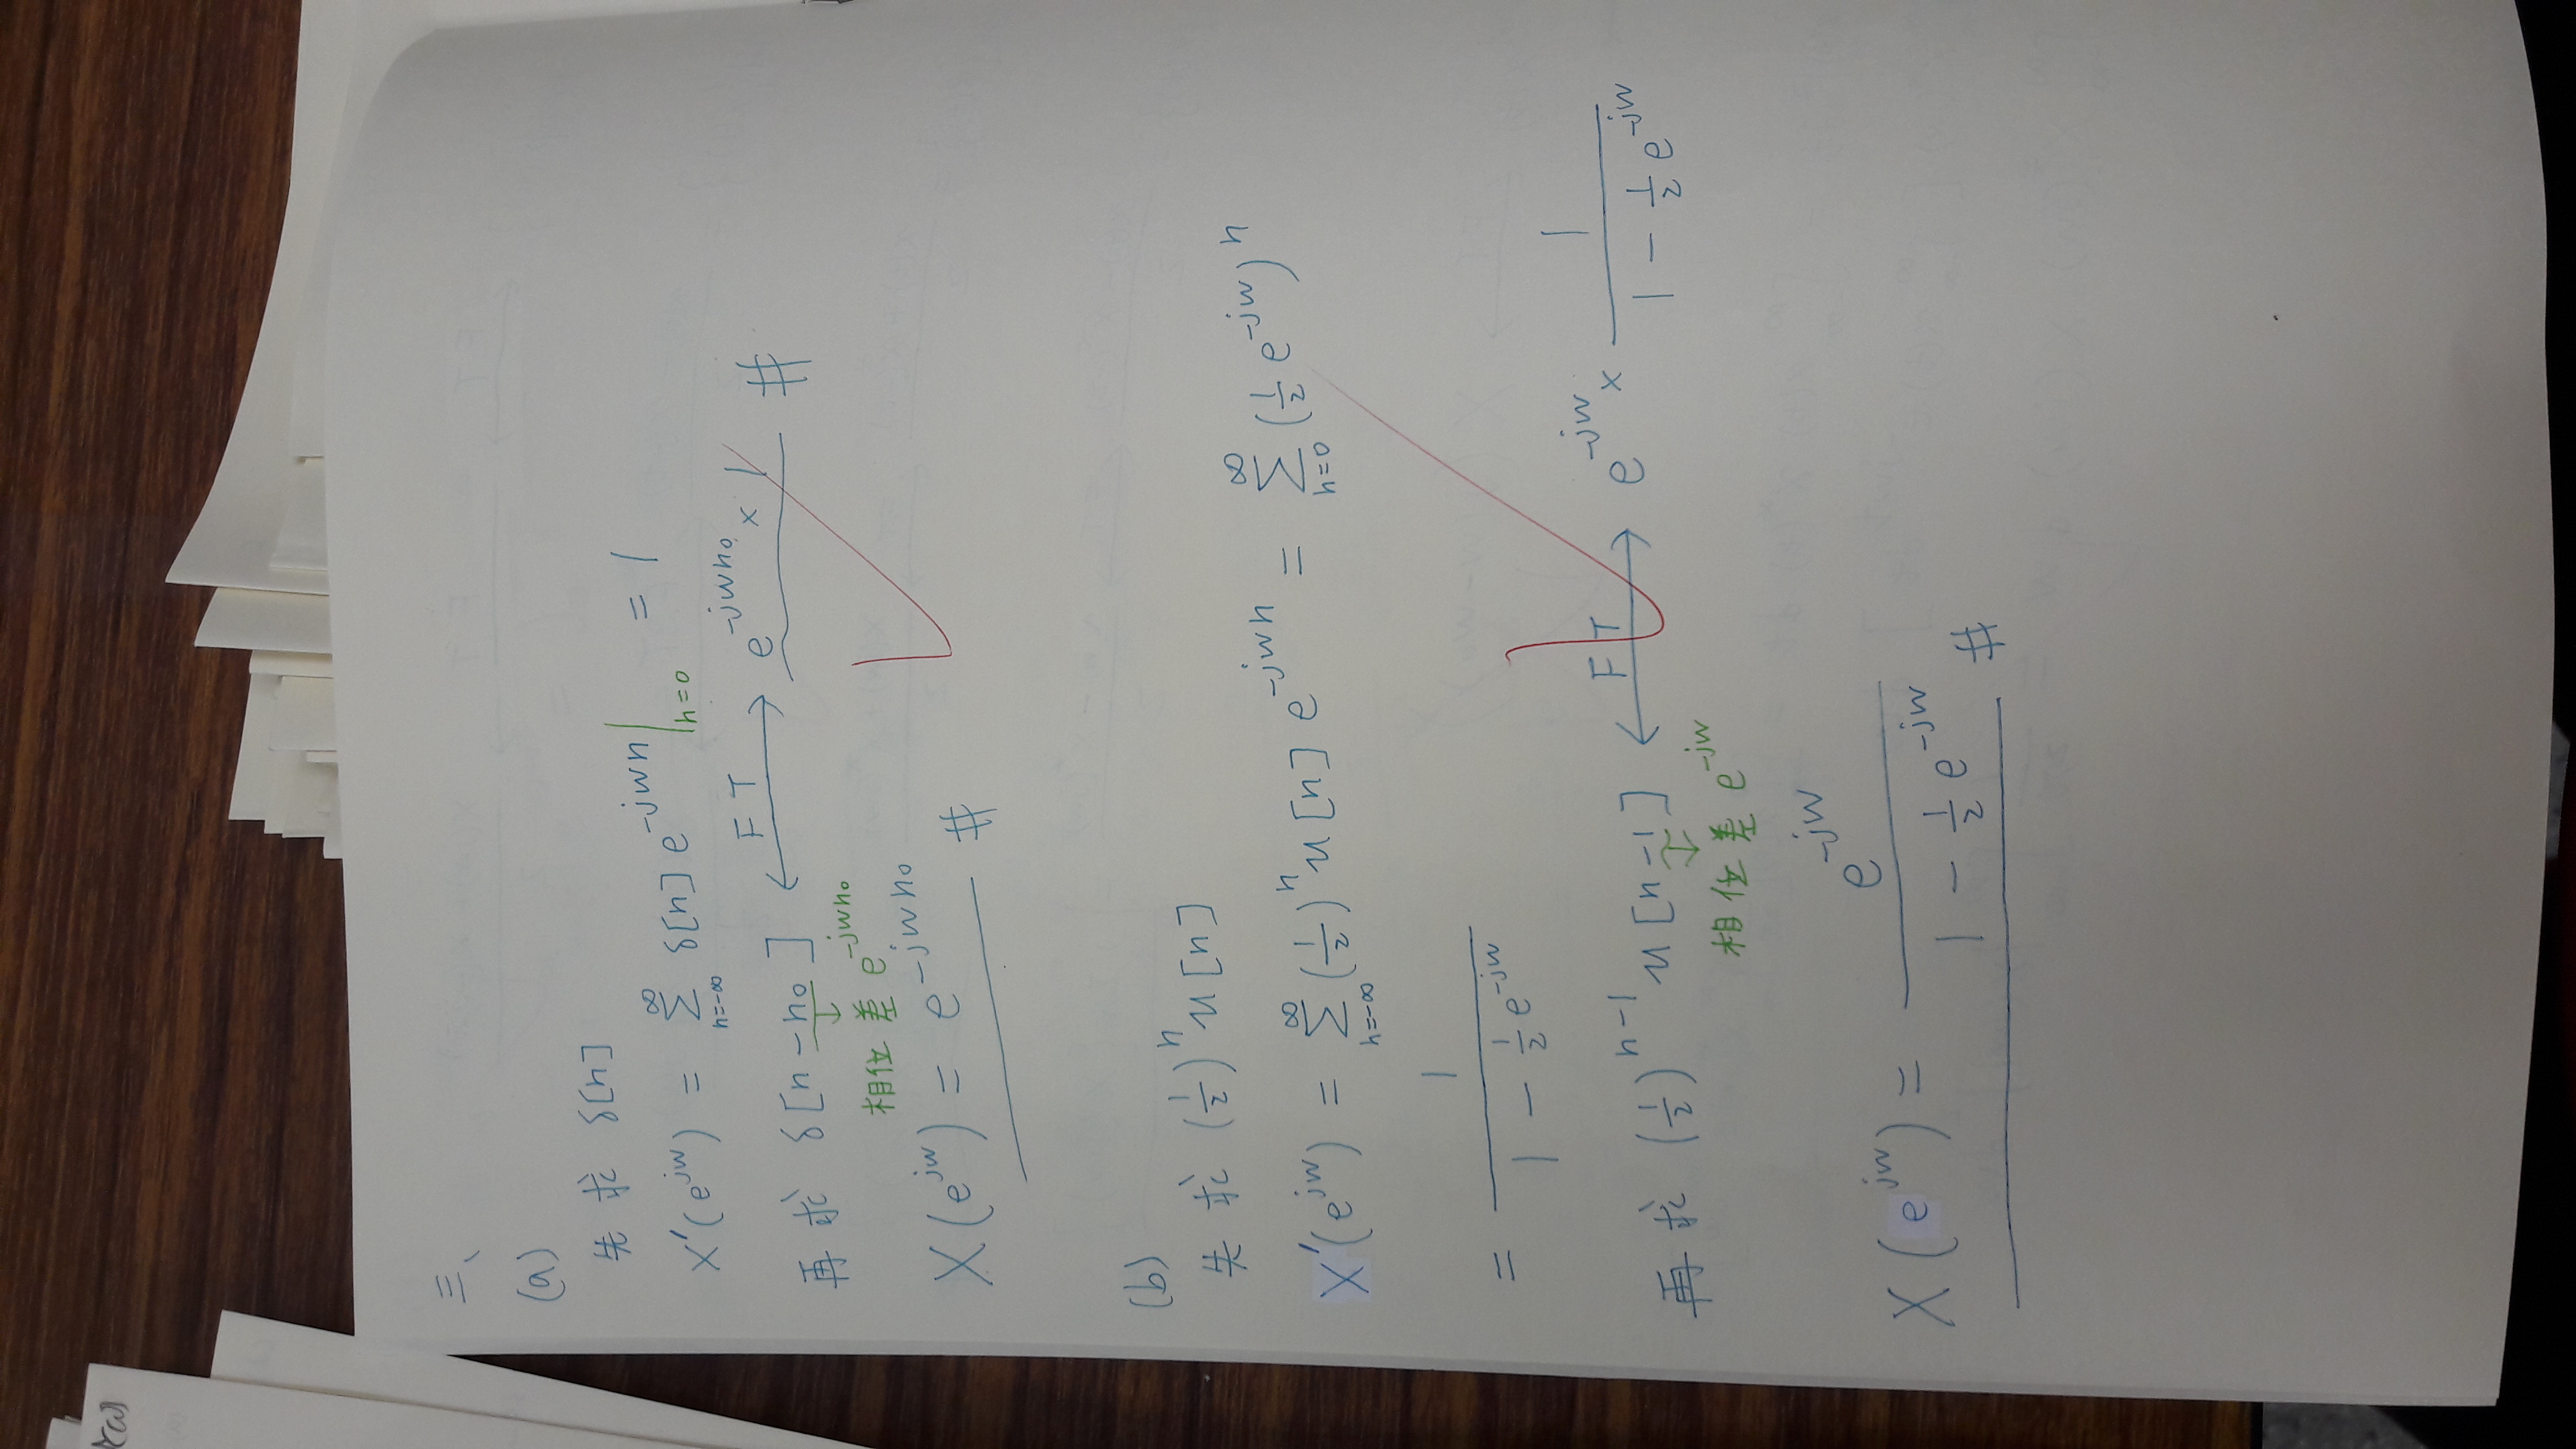 三、
(a)
先求 δ[n]
X'(e^{jw}) = \sum_{n=-∞}^{∞} δ[n] e^{-jwn} |_{n=0} = 1
再求 δ[n-n₀] ⟷^{FT} e^{-jwn₀} × 1 #
↓
相位差 e^{-jwn₀}
X(e^{jw}) = e^{-jwn₀} #
(b)
先求 (\frac{1}{2})^n u[n]
X'(e^{jw}) = \sum_{n=-∞}^{∞} (\frac{1}{2})^n u[n] e^{-jwn} = \sum_{n=0}^{∞} (\frac{1}{2} e^{-jw})^n
= \frac{1}{1 - \frac{1}{2} e^{-jw}}
再求 (\frac{1}{2})^{n-1} u[n-1] ⟷^{FT} e^{-jw} × \frac{1}{1 - \frac{1}{2} e^{-jw}}
↓
相位差 e^{-jw}
X(e^{jw}) = \frac{e^{-jw}}{1 - \frac{1}{2} e^{-jw}} #